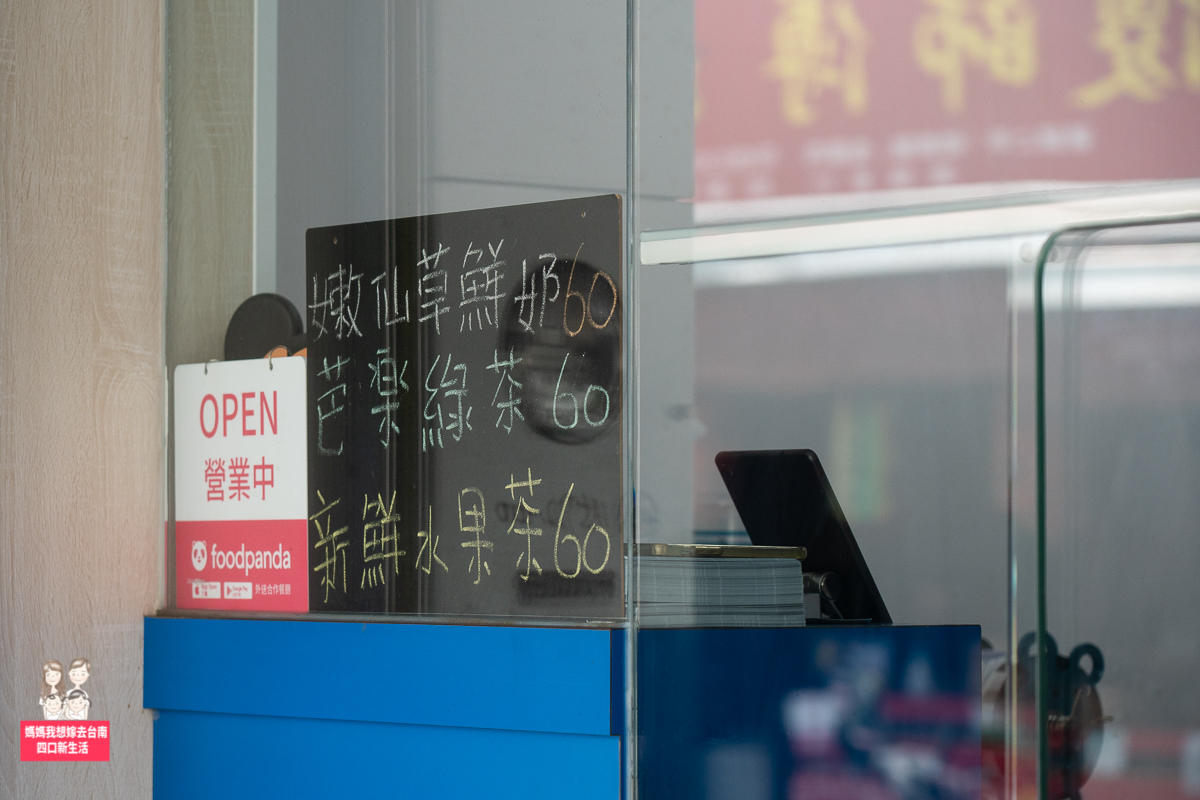 嫩仙草鮮奶60
芭楽綠茶60
新鮮水果茶60
OPEN
營業中
foodpanda
Google Play
外送合作餐廳
媽媽我想嫁去台南
四口新生活